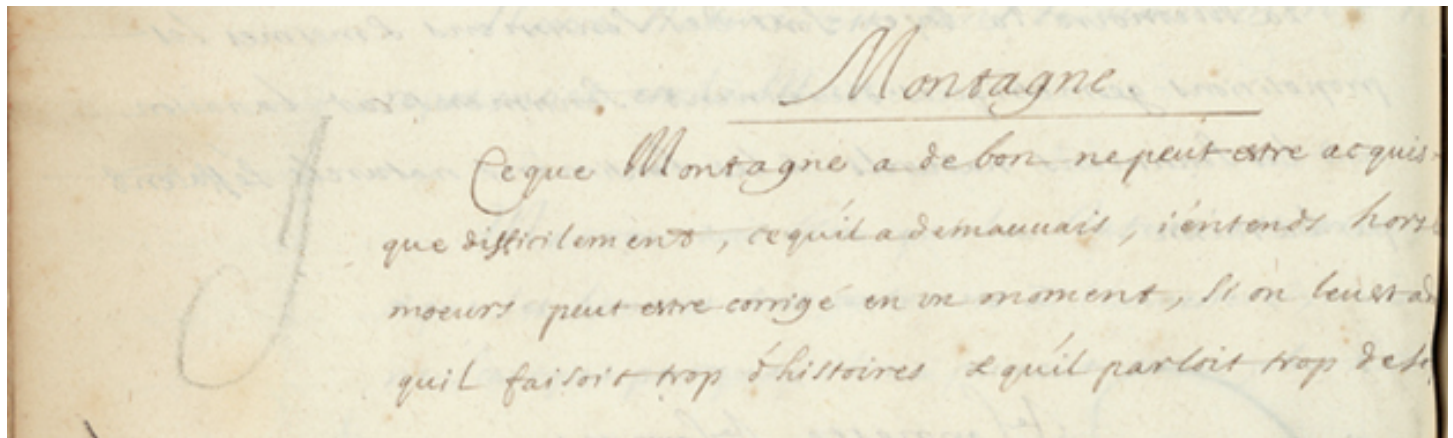 Montagne
Ce que Montagne a de bon ne peut estre acquis
que difficilement, ce qu'il a de mauuais, i'entends hors
moeurs peut estre corrigé en vn moment, si on leust
quil faisoit trop d'histoires & qu'il parloit trop de